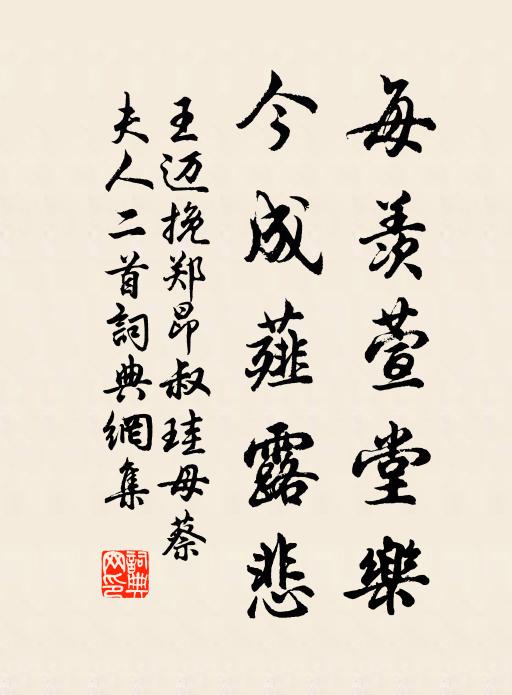 每羨萱堂樂
今成薤露悲
王迈挽郑昂叔珪母蔡
夫人二首詞典網集
詞典
网印